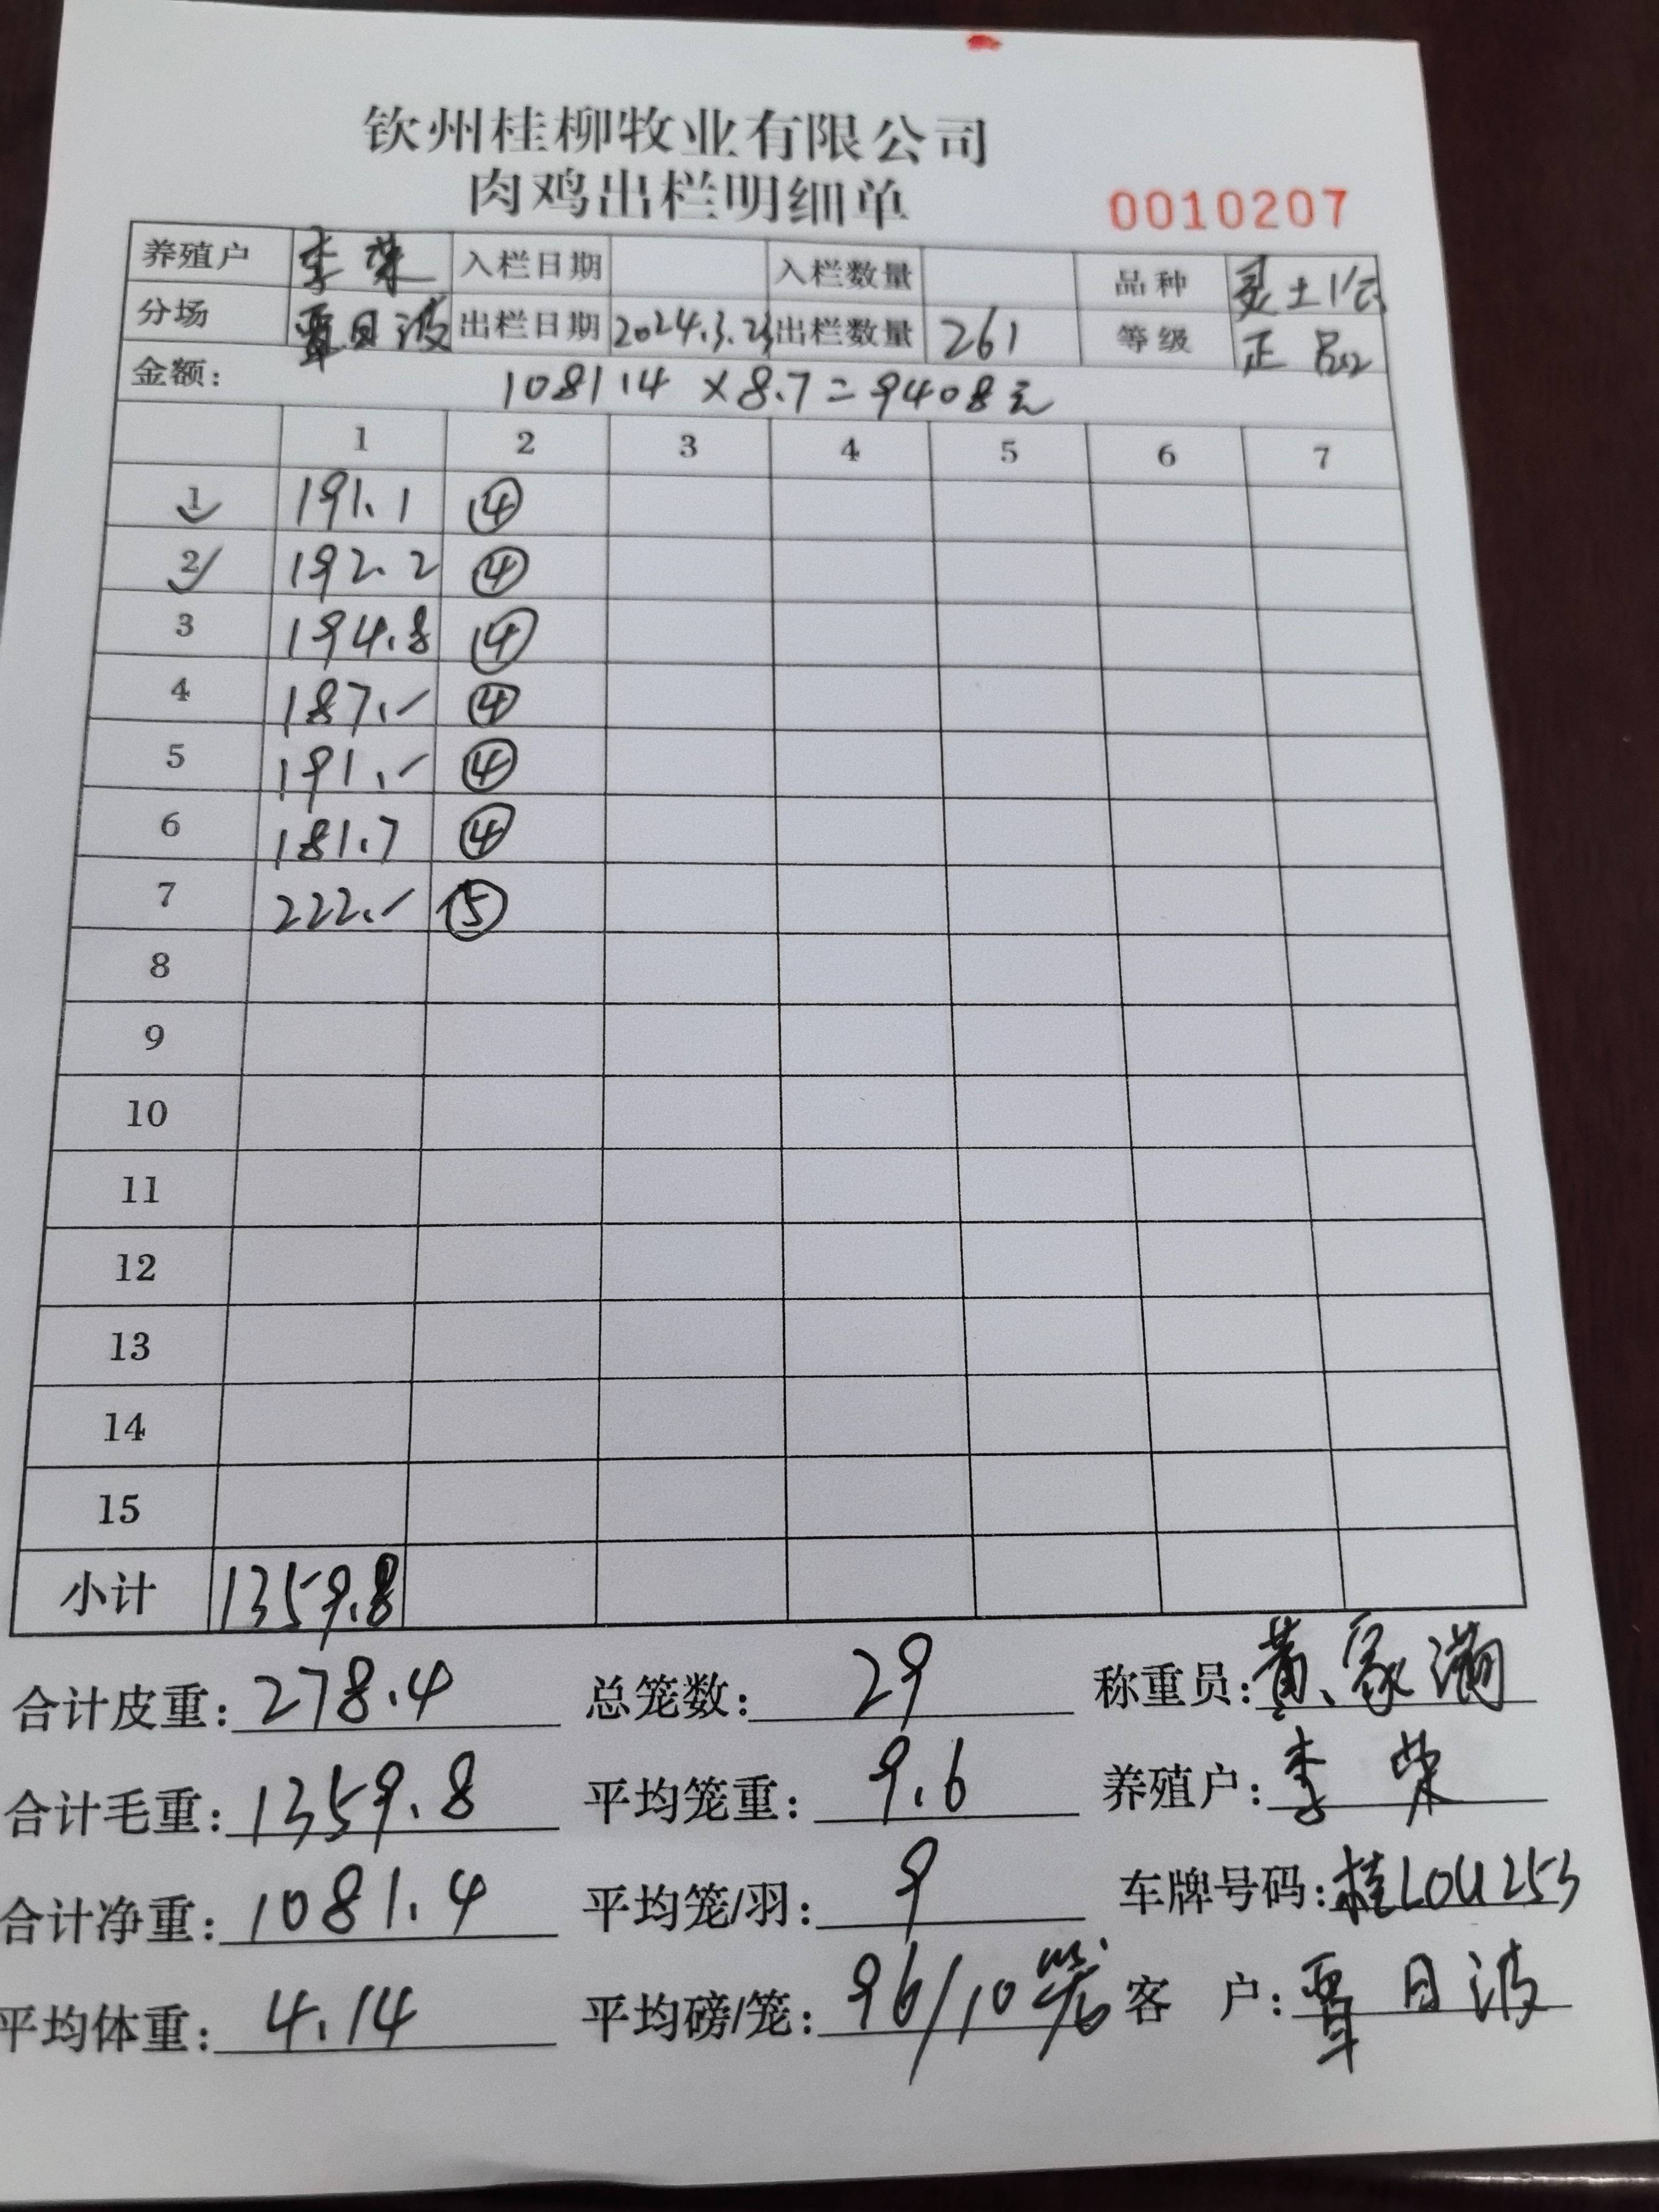 钦州桂柳牧业有限公司
肉鸡出栏明细单 0010207
养殖户 李荣 入栏日期 入栏数量 品种 灵土1公
分场 覃日波 出栏日期 2024.3.23 出栏数量 261 等级 正品
金额: 1081.4 × 8.7 = 9408元
1 2 3 4 5 6 7
1 191.1 ④
2 192.2 ④
3 194.8 ④
4 187.- ④
5 191.- ④
6 181.7 ④
7 222.- ⑤
8
9
10
11
12
13
14
15
小计 1359.8
合计皮重: 278.4 总笼数: 29 称重员: 黄家满
合计毛重: 1359.8 平均笼重: 9.6 养殖户: 李荣
合计净重: 1081.4 平均笼/羽: 9 车牌号码: 桂L0U253
平均体重: 4.14 平均磅/笼: 96/10笼 客 户: 覃日波